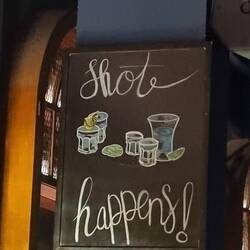 Shote
happens!